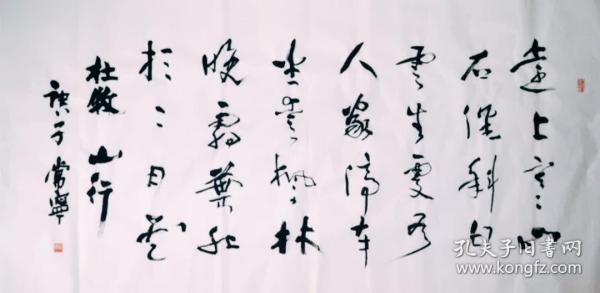 遠上寒山
石徑斜白
雲生處有
人家停車
坐愛楓林
晚霜葉紅
於二月花
杜牧山行
常寧
孔夫子旧书网
www.kongfz.com